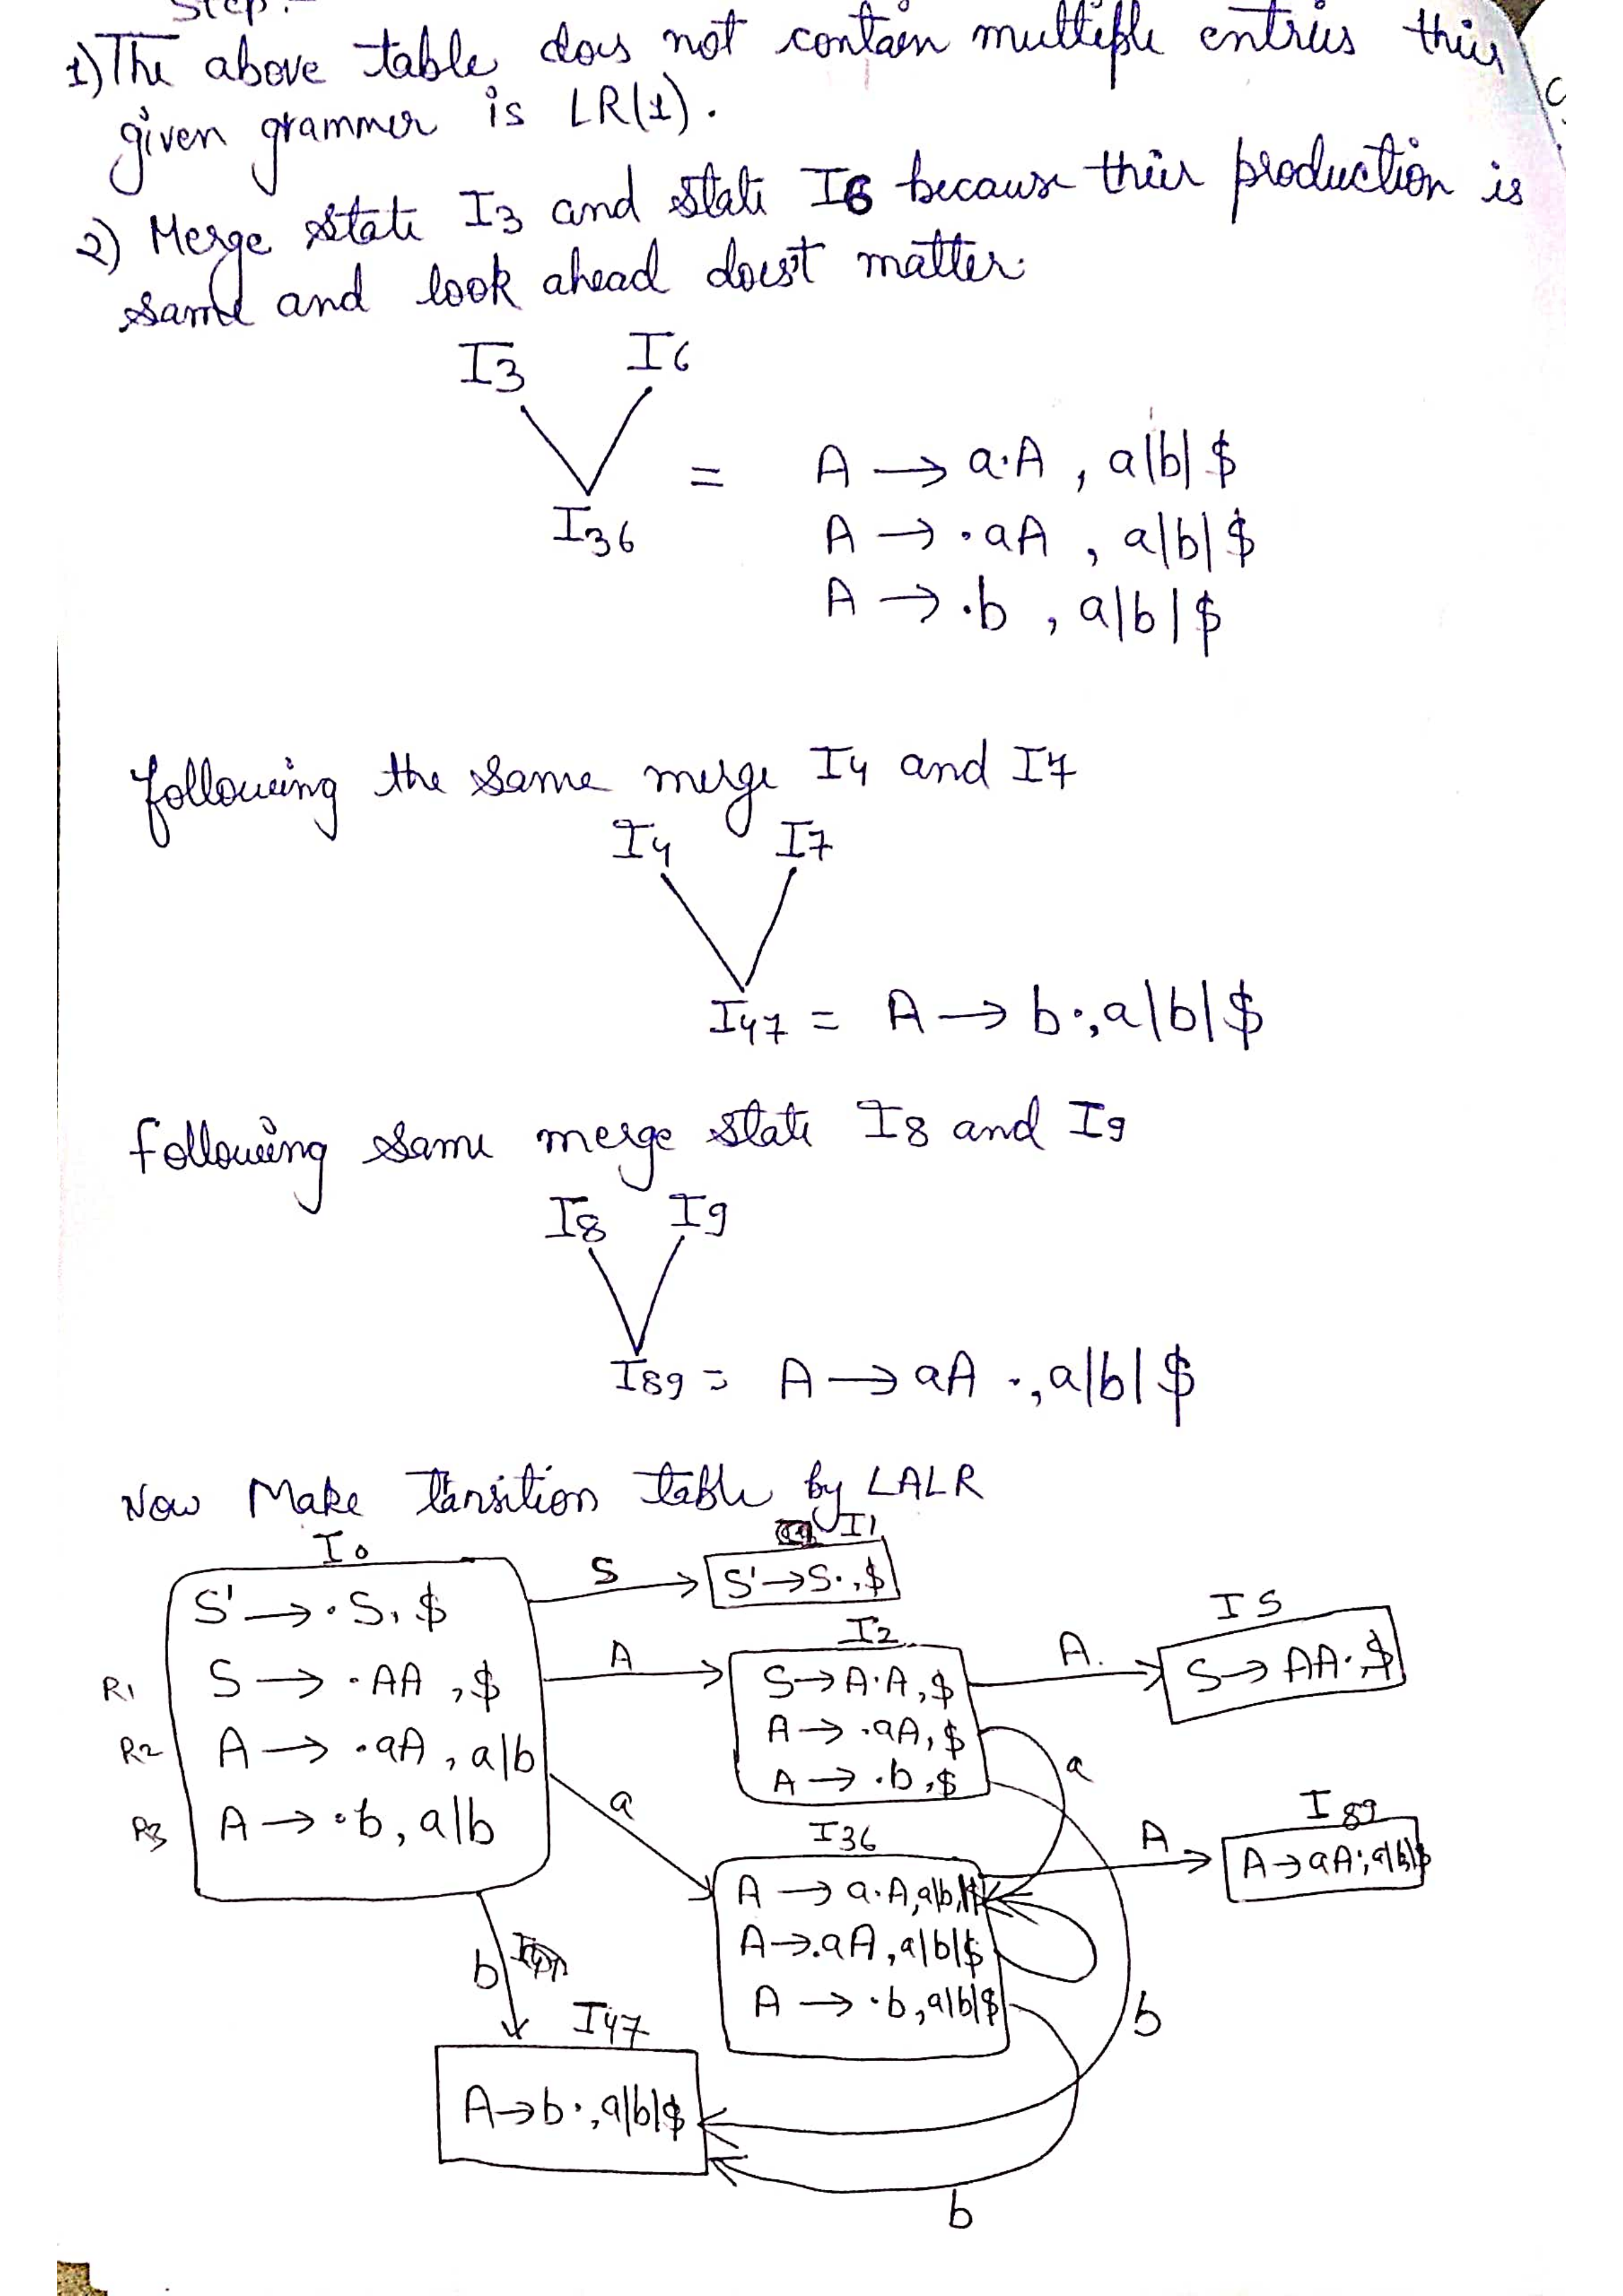 Step:-
1) The above table does not contain multiple entries this
given grammer is LR(1).
2) Merge state I3 and state I6 because their production is
same and look ahead does't matter.
I3 I6
I36
=
A → a.A , a|b|$
A → .aA , a|b|$
A → .b , a|b|$
following the same merge I4 and I7
I4 I7
I47 = A → b., a|b|$
following same merge state I8 and I9
I8 I9
I89 = A → aA ., a|b|$
Now Make Tansition table by LALR
I0
S' → .S, $
R1 S → .AA , $
R2 A → .aA , a|b
R3 A → .b, a|b
S
I1
S' → S., $
A
I2
S → A.A, $
A → .aA, $
A → .b, $
A.
I5
S → AA. $
a
a
I36
A → a.A, a|b|$
A → .aA, a|b|$
A → .b, a|b|$
A
I89
A → aA., a|b|$
b
b
I47
A → b., a|b|$
b